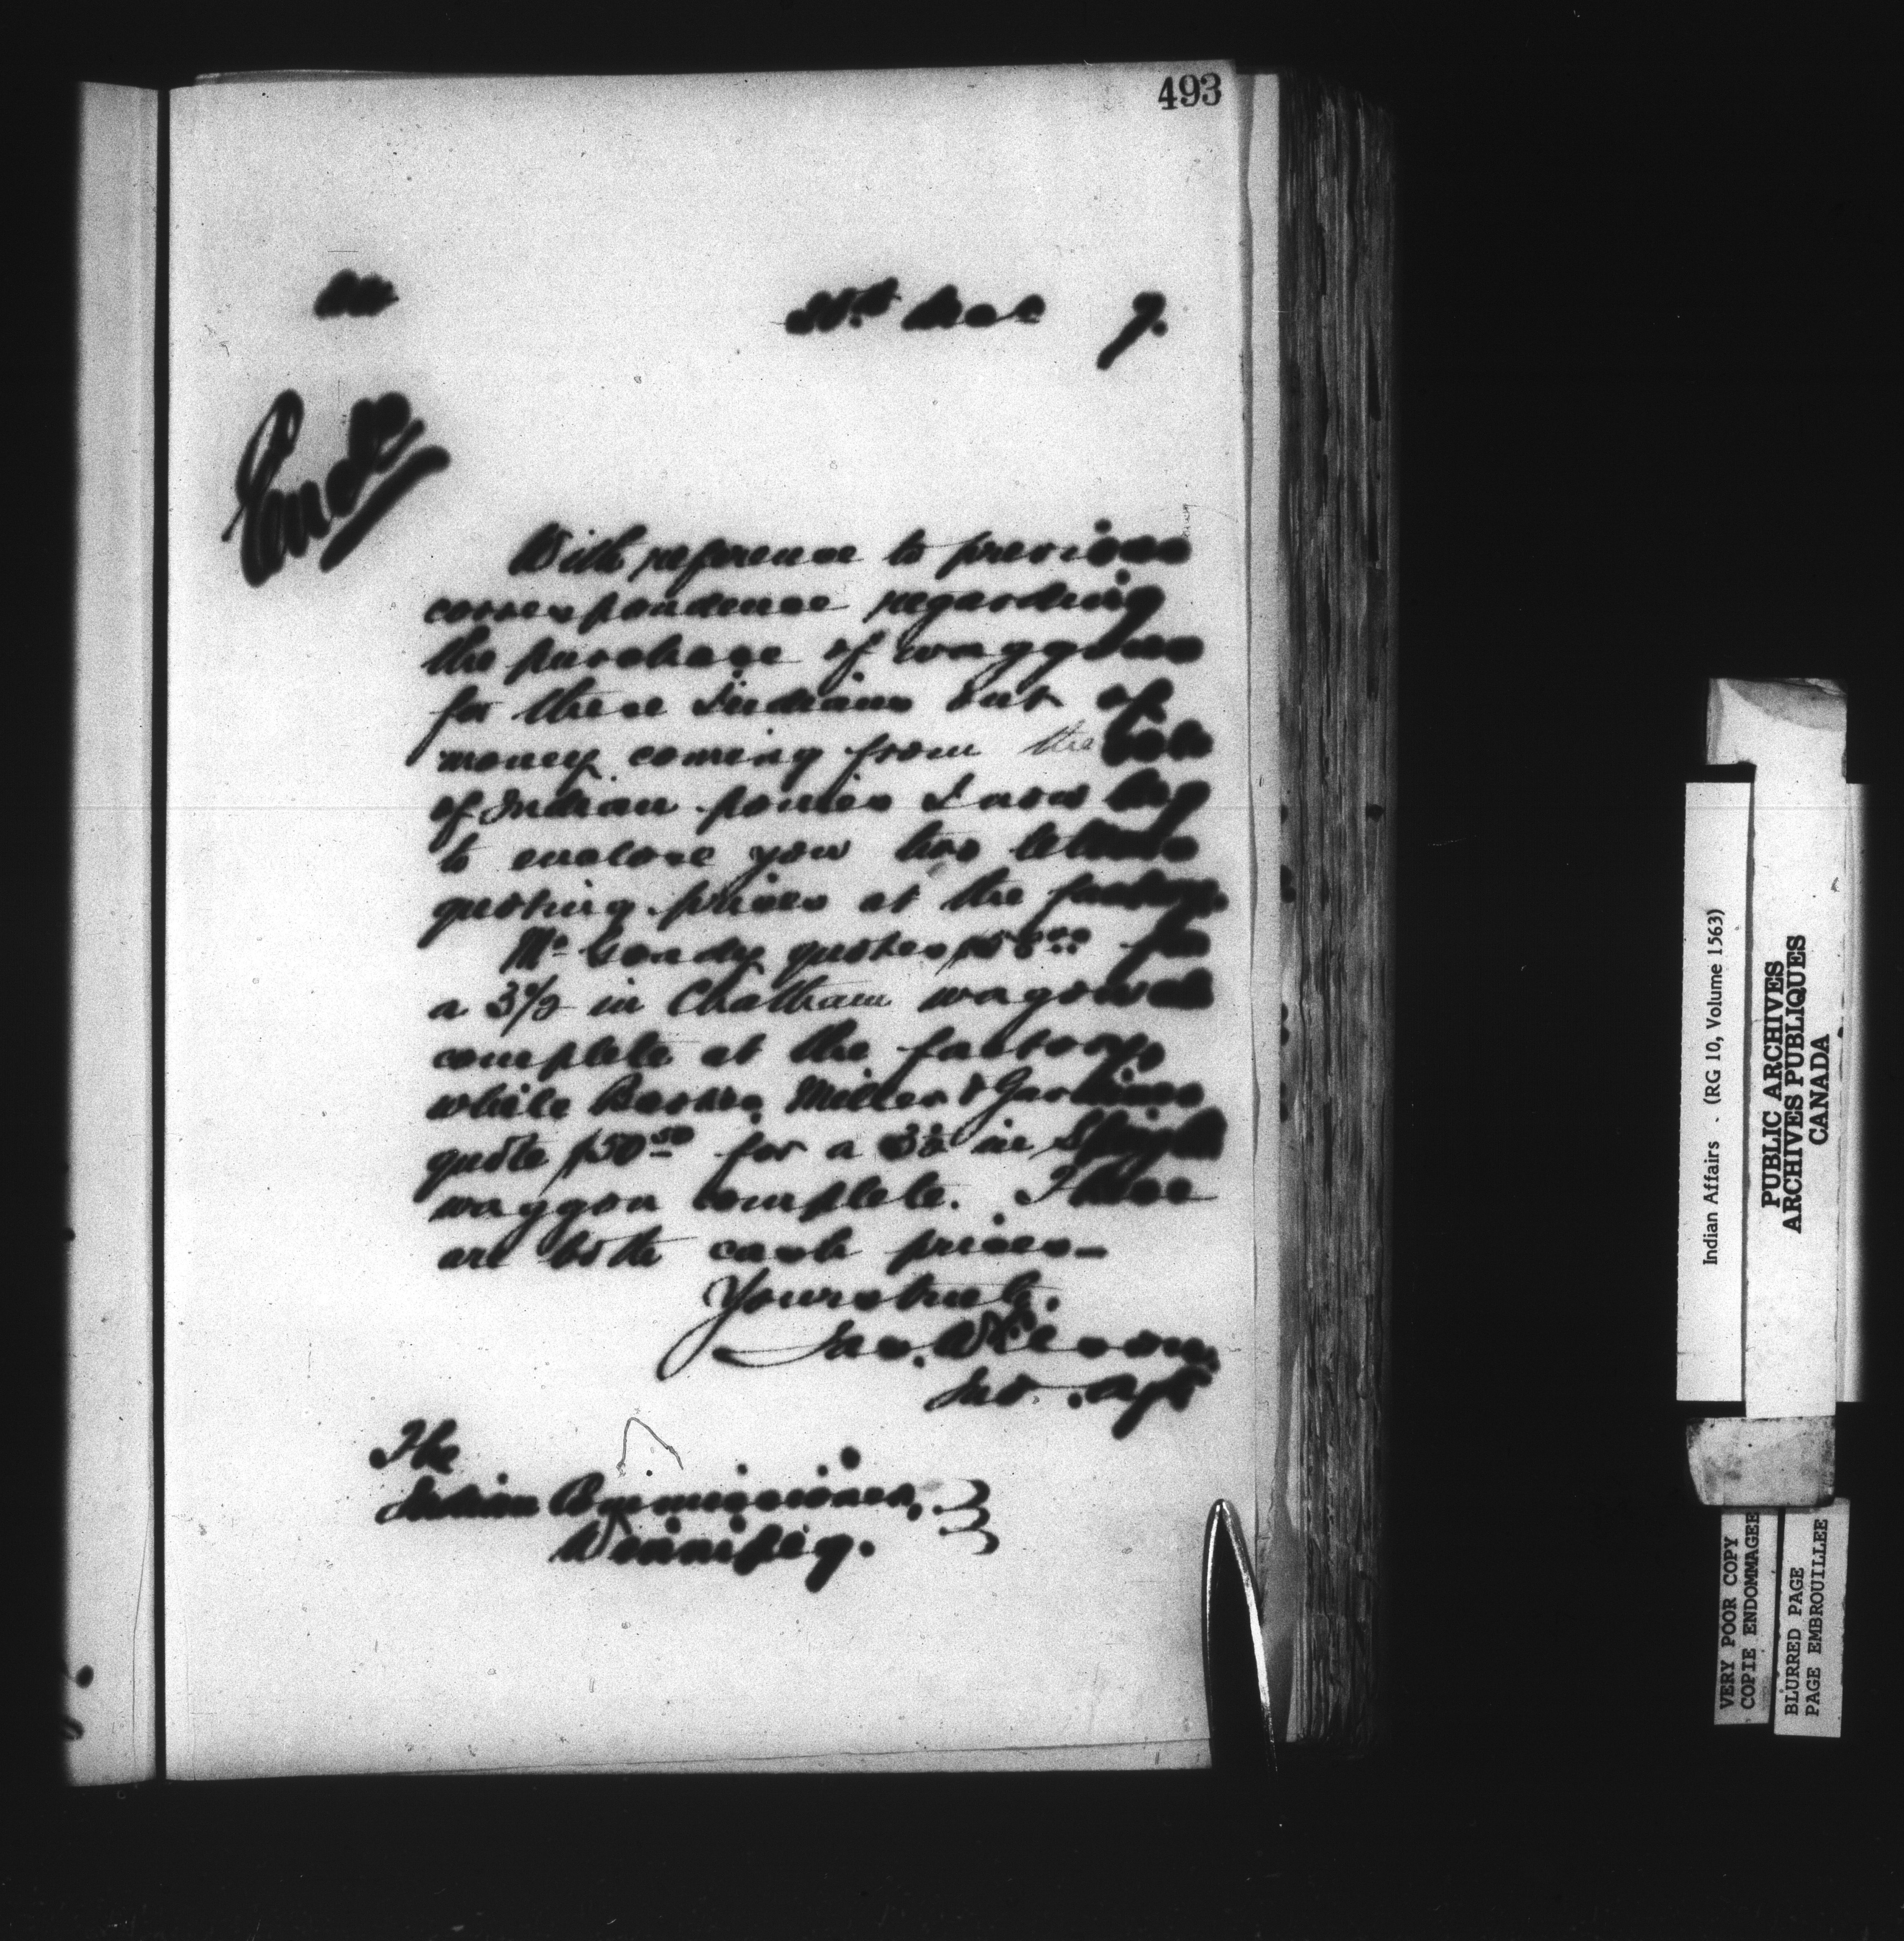 493
30th
9.
With reference to previous
correspondence regarding
the purchase of waggons
for these Indians out of
money coming from the sale
of Indian ponies I now beg
to enclose you two letters
quoting prices at the factory.
Mr quotes for
a 3½ in Chatham waggon
complete at the factory,
while Messrs. Miller &
quote $50.50 for a 3½ in
waggon complete. These
are both cash prices—
Yours truly,
Jas. Wilson
Ind. Agt
The
Indian Commissioner,
Winnipeg.
Indian Affairs . (RG 10, Volume 1563)
PUBLIC ARCHIVES
ARCHIVES PUBLIQUES
CANADA
VERY POOR COPY
COPIE ENDOMMAGEE
BLURRED PAGE
PAGE EMBROUILLEE